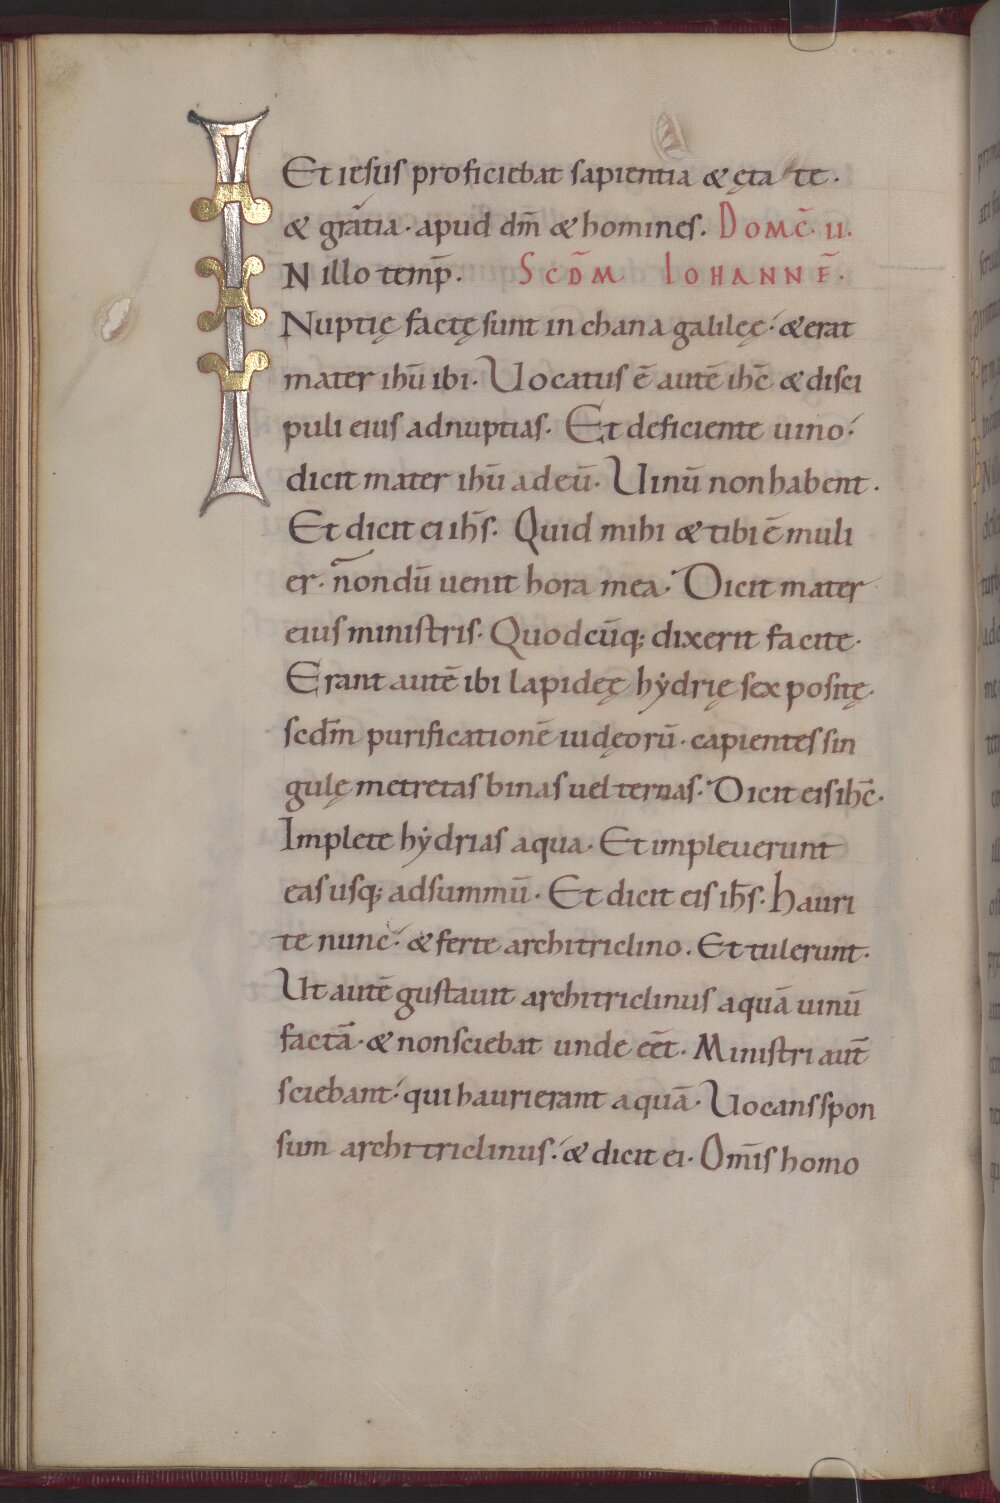 Et iesus proficiebat sapientia & ęta te.
& grātia. apud dm̄ & homines. Domc̄. II.
IN illo temp̄. Scd̄m Iohannē.
Nuptię factę sunt in chana galileę. & erat
mater ihū ibi. Uocatus ē autē ihc̄ & disci
puli eius adnuptias. Et deficiente uino.
dicit mater ihū adeū. Uinū non habent.
Et dicit ei ihs̄. Quid mihi & tibi ē muli
er. nondū uenit hora mea. Dicit mater
eius ministris. Quodcūq; dixerit facite.
Erant autē ibi lapideę hẏdrię sex positę.
scdm̄ purificationē iudęorū. capientes sin
gulę metretas binas uel ternas. Dicit eis ihc̄.
Implete hẏdrias aqua. Et impleuerunt
eas usq; adsummū. Et dicit eis ihs̄. hauri
te nunc. & ferte architriclino. Et tulerunt.
Ut autē gustauit architriclinus aquā uinū
factā. & nonsciebat unde eēt. Ministri aut̄
sciebant. qui haurierant aquā. Uocans spon
sum architriclinus. & dicit ei. Om̄is homo